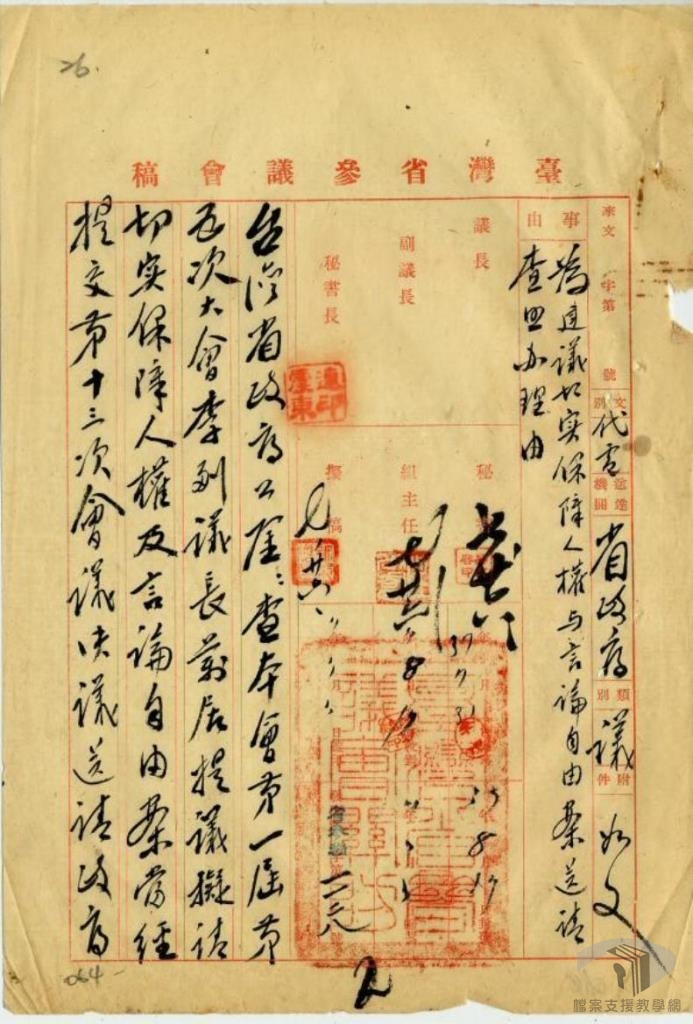 26.
臺灣省參議會稿
來文 字第 號
文別 代電
送達機關 省政府
類別 議
附件 如文
事由
為建議切实保障人權与言論自由案送請
查照办理由
議長
副議長
秘書長
秘
組主任
擬稿
連印震東
37 7 31
37 8 17
台灣省政府公鑒：查本會第一屆第
五次大會李副議長萬居提議擬請
切实保障人權及言論自由案当經
提交第十三次會議决議送請政府
064
檔案支援教學網